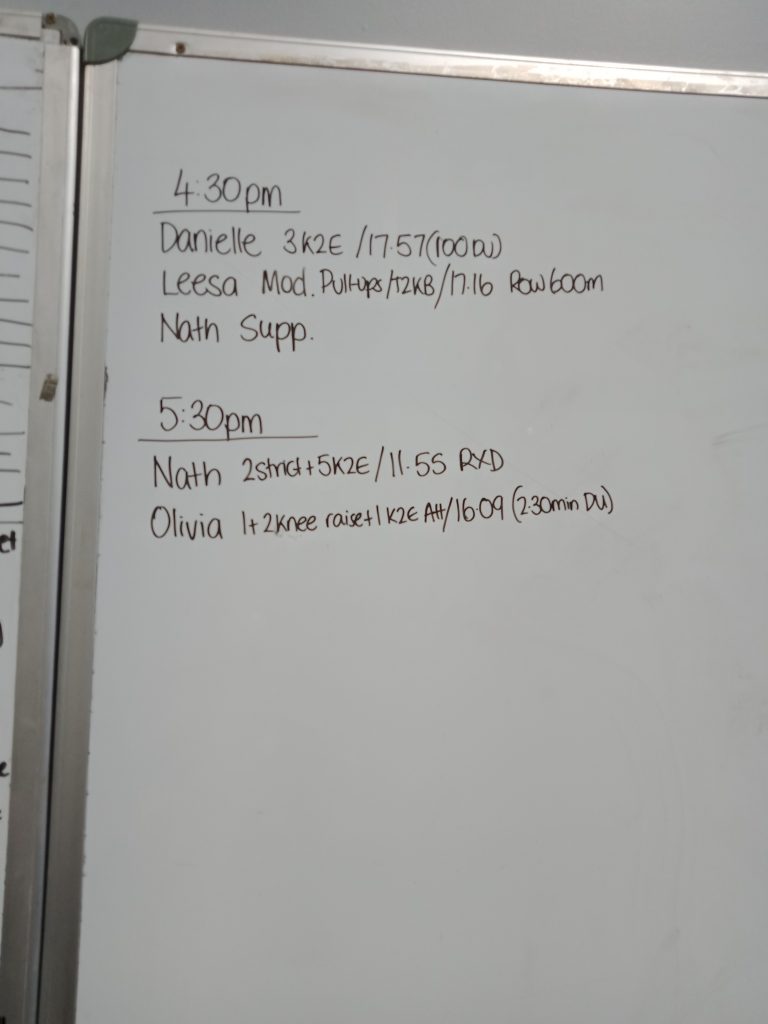 4:30pm
Danielle 3K2E /17.57(100DU)
Leesa Mod. Pull-ups/12KB/17.16 Row 600m
Nath Supp.
5:30pm
Nath 2strict+5K2E/11.55 RXD
Olivia 1+2Knee raise+1K2E Att/16.09 (2.30min DU)
et